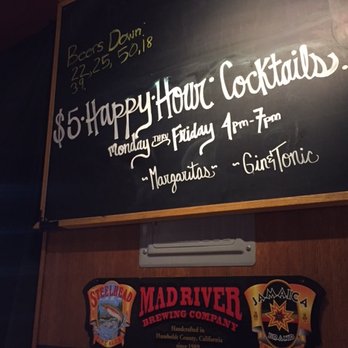 Beers Down:
22, 25, 50, 18
39,
$5 Happy Hour Cocktails.
Monday thru Friday 4pm-7pm
~Margaritas~ ~Gin & Tonic
STEELHEAD
MAD RIVER
BREWING COMPANY
Handcrafted in
Humboldt County, California
since 1989
JAMAICA
BRAND